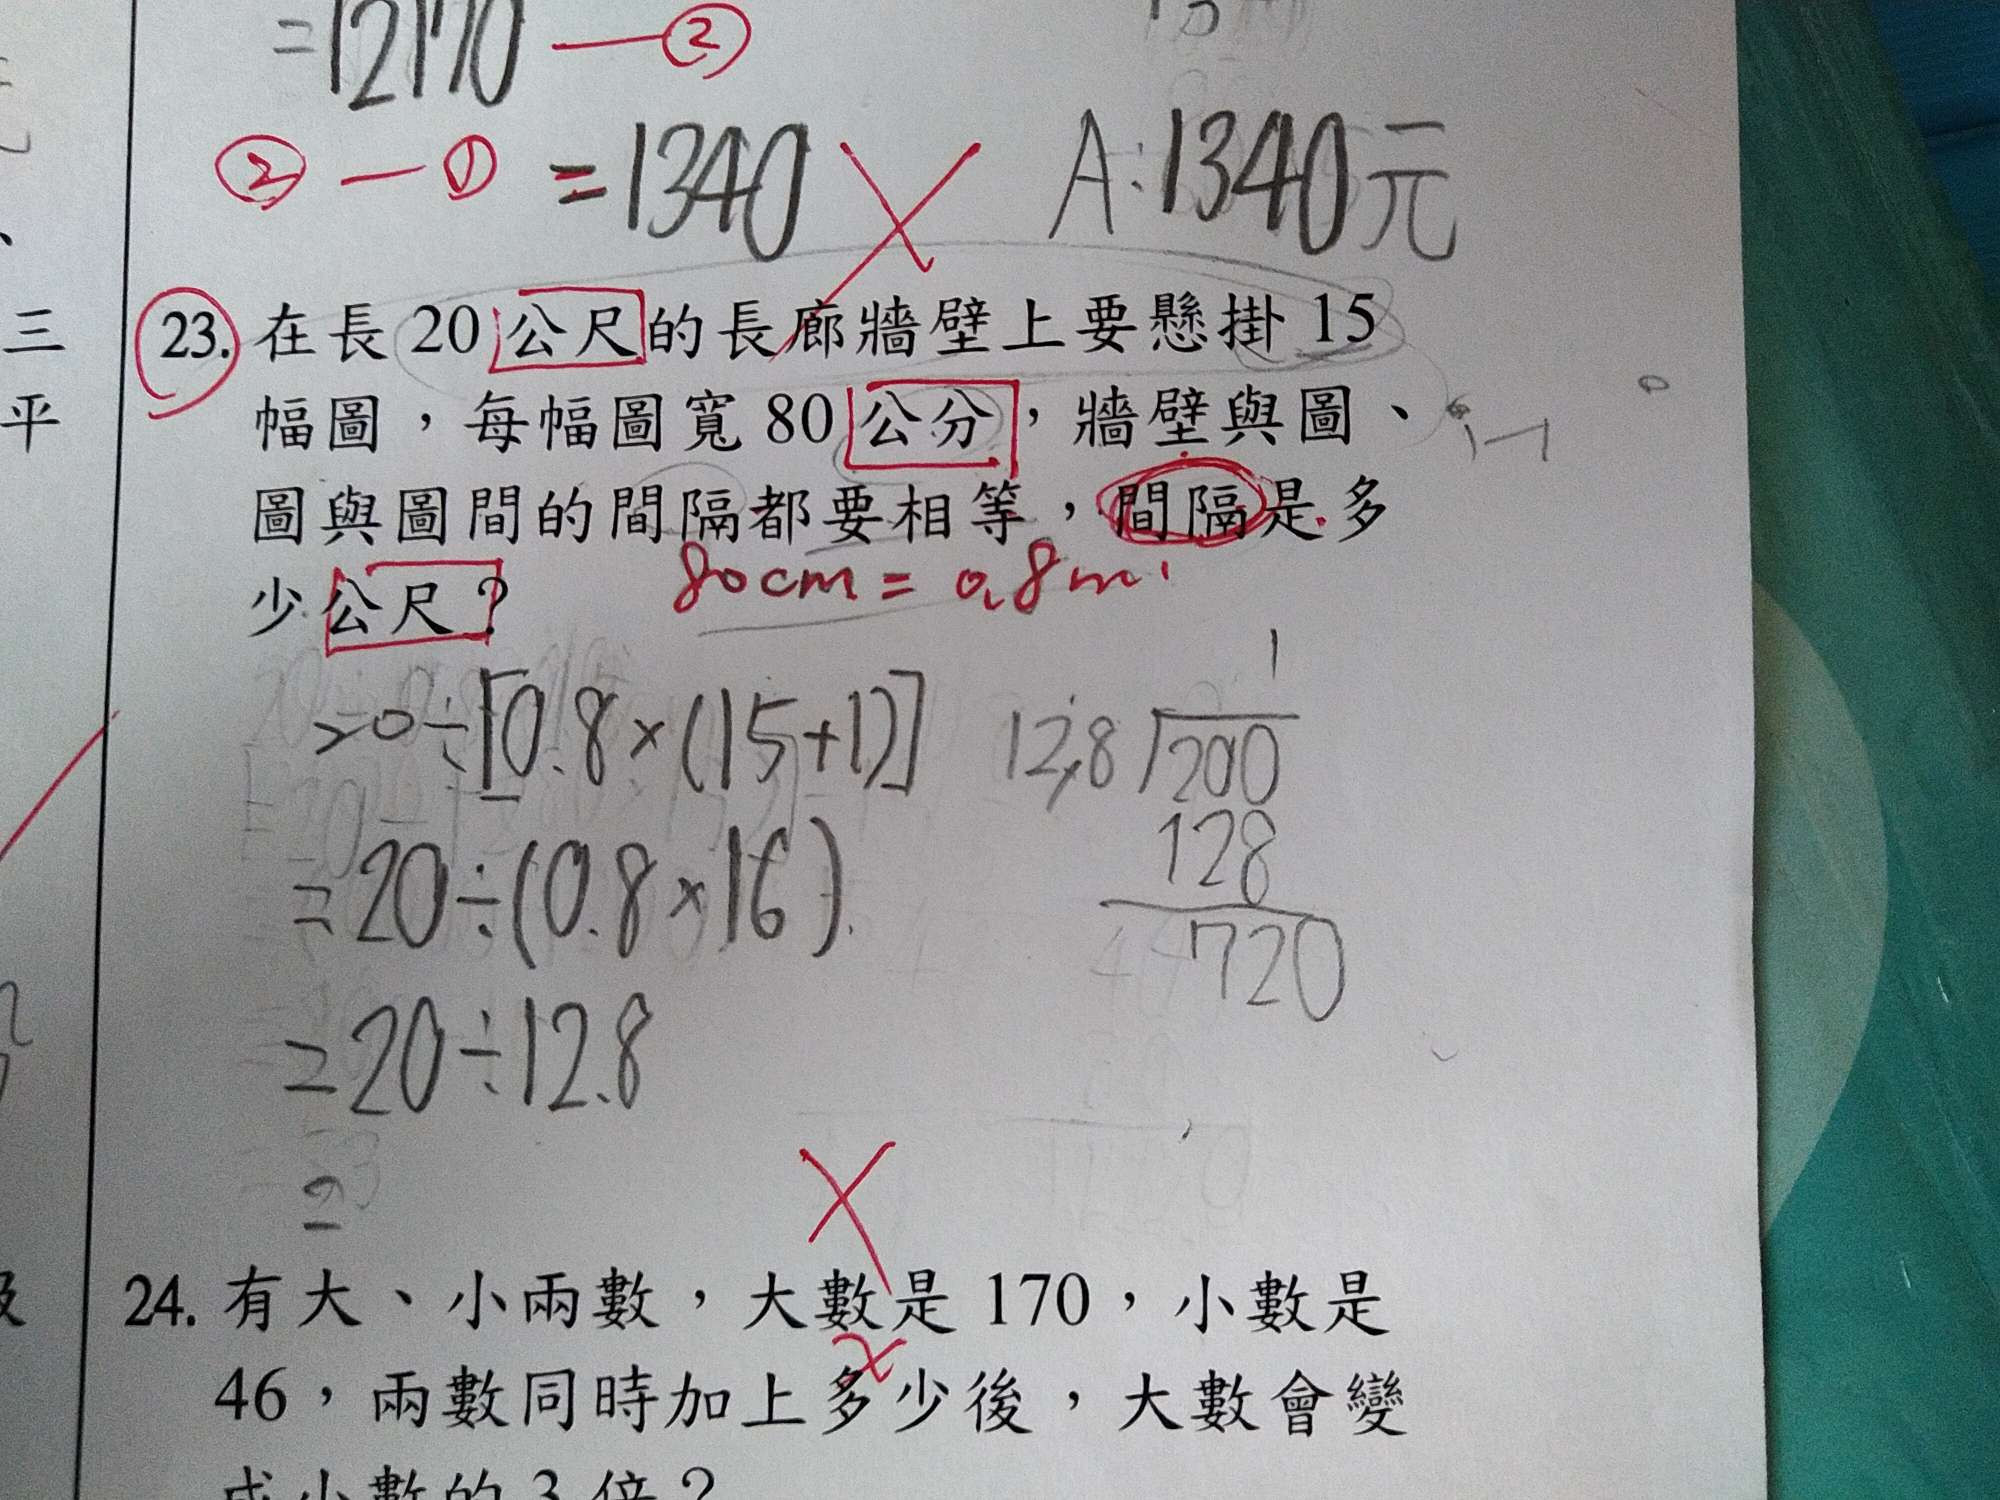 =12170 — ②
② — ① =1340 A:1340元
23. 在長 20 公尺的長廊牆壁上要懸掛 15
幅圖，每幅圖寬 80 公分，牆壁與圖、
圖與圖間的間隔都要相等，間隔是多
少公尺？
80cm = 0.8m
20÷[0.8×(15+1)]
=20÷(0.8×16)
=20÷12.8
=
1
12.8 200
128
720
24. 有大、小兩數，大數是 170，小數是
x
46，兩數同時加上多少後，大數會變
成小數的 3 倍？
三
平